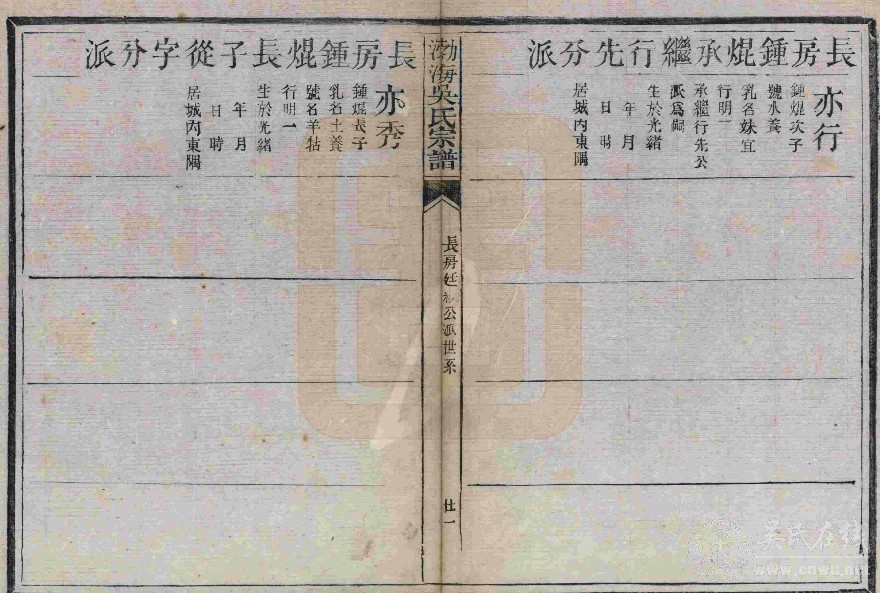 長房鍾焜承繼行先分派
亦行
鍾焜次子
號水養
乳名妹宜
行明一
承繼行先公
派為嗣
生於光緒
年　月
日　時
居城內東隅
渤海吳氏宗譜
長房廷 公派世系
廿一
長房鍾焜長子從字分派
亦秀
鍾焜長子
乳名土養
號名羊牯
行明一
生於光緒
年　月
日　時
居城內東隅
吴氏在线
www.cnwu.net